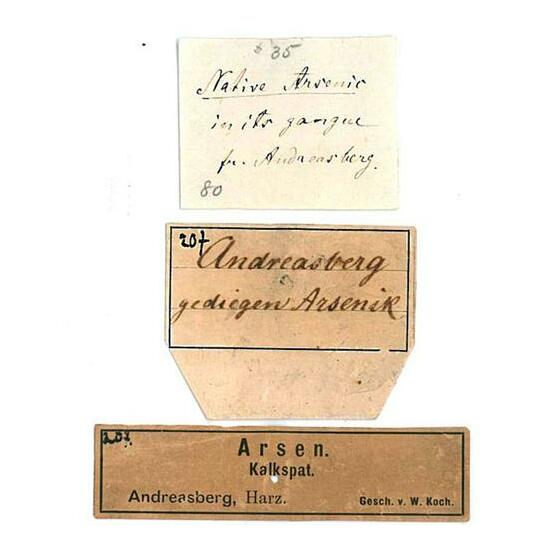 35
Native Arsenic
in its gangue
fr. Andreasberg.
80
207
Andreasberg
gediegen Arsenik
207
Arsen.
Kalkspat.
Andreasberg, Harz. Gesch. v. W. Koch.